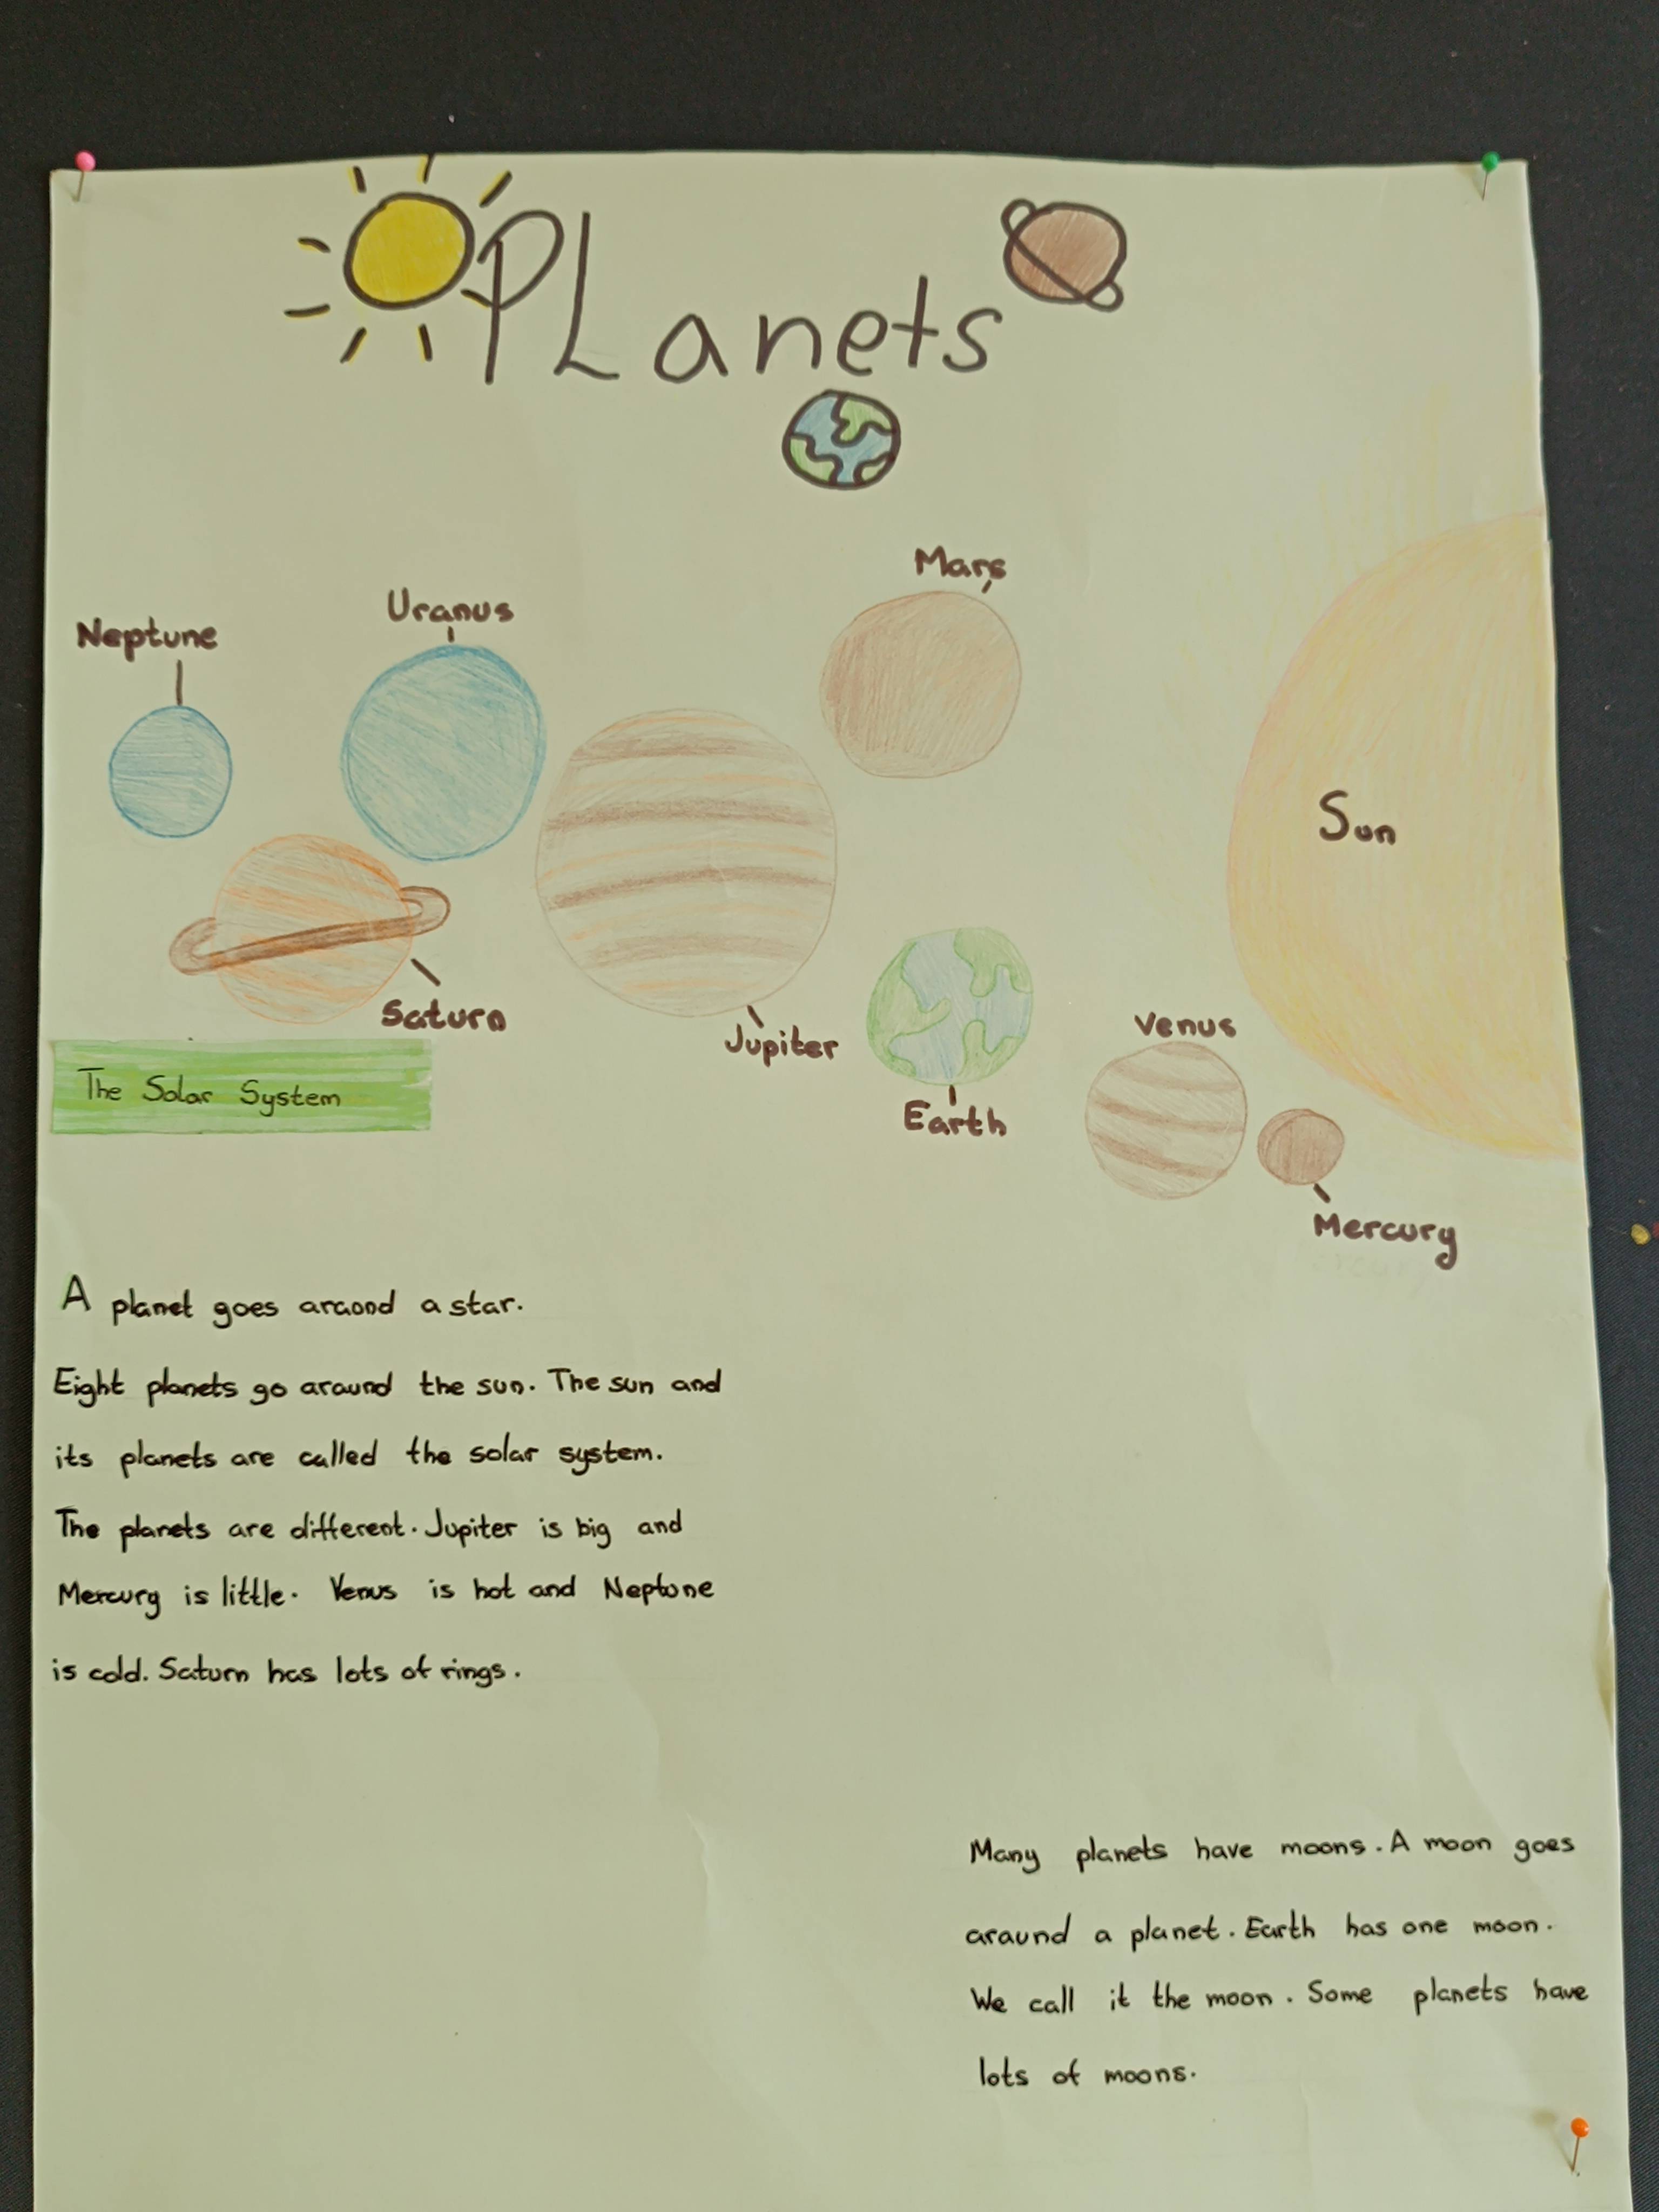 PLanets
Mars
Uranus
Neptune
Sun
Saturn
Jupiter
Venus
The Solar System
Earth
Mercury
A planet goes araond a star.
Eight planets go around the sun. The sun and
its planets are called the solar system.
The planets are different. Jupiter is big and
Mercury is little. Venus is hot and Neptune
is cold. Saturn has lots of rings.
Many planets have moons. A moon goes
around a planet. Earth has one moon.
We call it the moon. Some planets have
lots of moons.